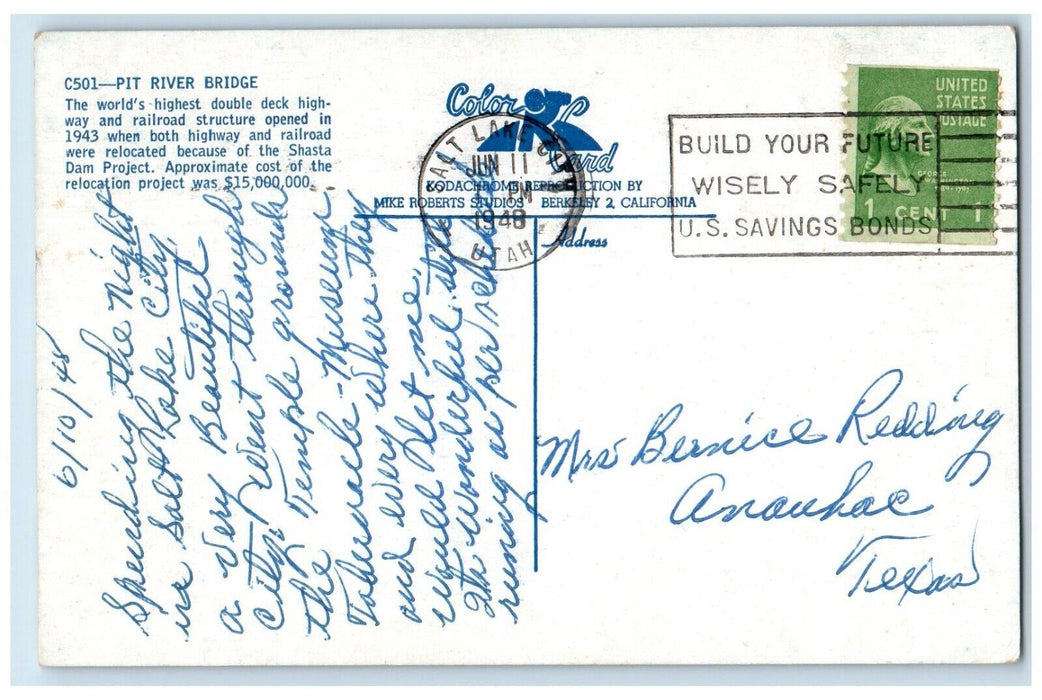 C501—PIT RIVER BRIDGE
The world's highest double deck high-
way and railroad structure opened in
1943 when both highway and railroad
were relocated because of the Shasta
Dam Project. Approximate cost of the
relocation project was $15,000,000.
Color Card
KODACHROME REPRODUCTION BY
MIKE ROBERTS STUDIOS BERKELEY 2, CALIFORNIA
Address
SALT LAKE CITY
JUN 11
PM
1948
UTAH
BUILD YOUR FUTURE
WISELY SAFELY
U.S. SAVINGS BONDS
UNITED
STATES
POSTAGE
GEORGE
WASHINGTON
1 CENT 1
6/10/48
Spending the night
in Salt Lake City,
a very Beautiful
City. Went through
the Temple grounds
Tabernacle - Museum.
and every where they
would let me.
Th wonderful states
runing as per schedule
Mrs Bernice Redding
Anauhac
Texas